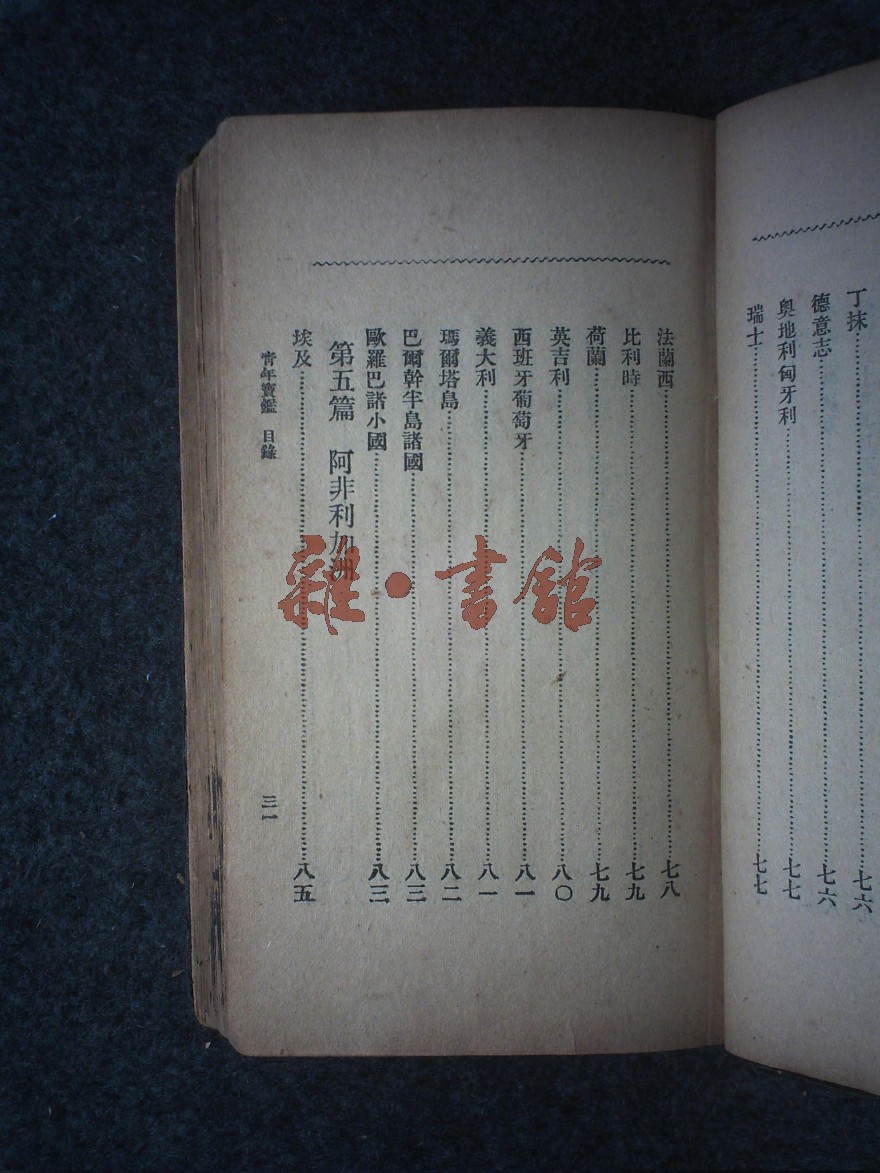 丁抹 七六
德意志 七六
奧地利匈牙利 七七
瑞士 七七
法蘭西 七八
比利時 七九
荷蘭 七九
英吉利 八〇
西班牙葡萄牙 八一
義大利 八一
瑪爾塔島 八二
巴爾幹半島諸國 八三
歐羅巴諸小國 八三
第五篇 阿非利加洲
埃及 八五
青年寶鑑 目錄 三一
雜·書館